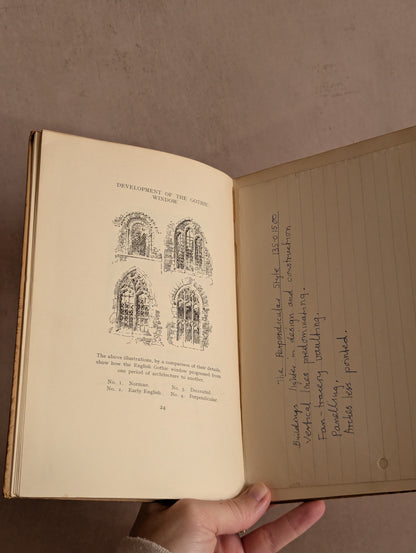 DEVELOPMENT OF THE GOTHIC
WINDOW
The above illustrations, by a comparison of their details,
show how the English Gothic window progressed from
one period of architecture to another.
No. 1. Norman.
No. 2. Early English.
No. 3. Decorated.
No. 4. Perpendicular.
24
The Perpendicular Style 1350-1500
Buildings lighter in design and construction
Vertical lines predominating.
Fan-tracery vaulting.
Panelling.
Arches less pointed.